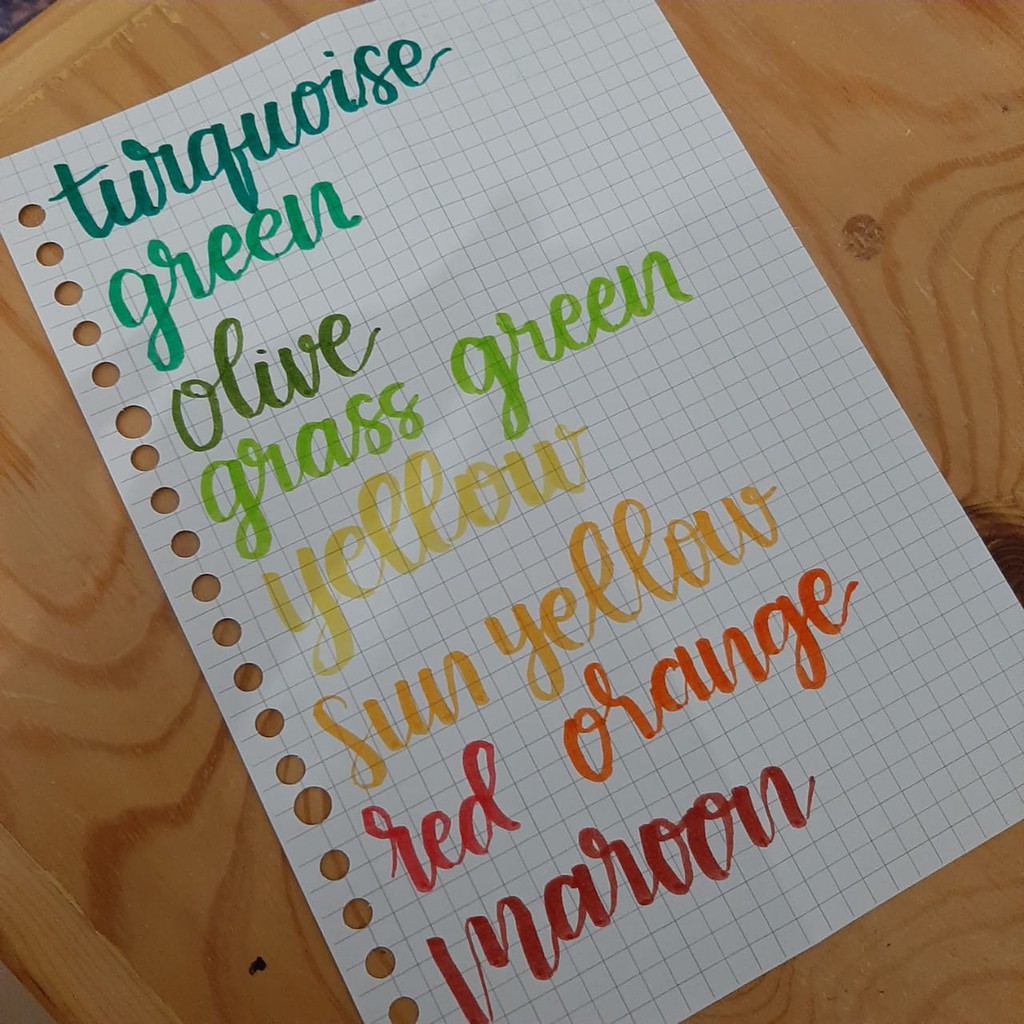 turquoise
green
olive
grass green
yellow
sun yellow
orange
red
maroon